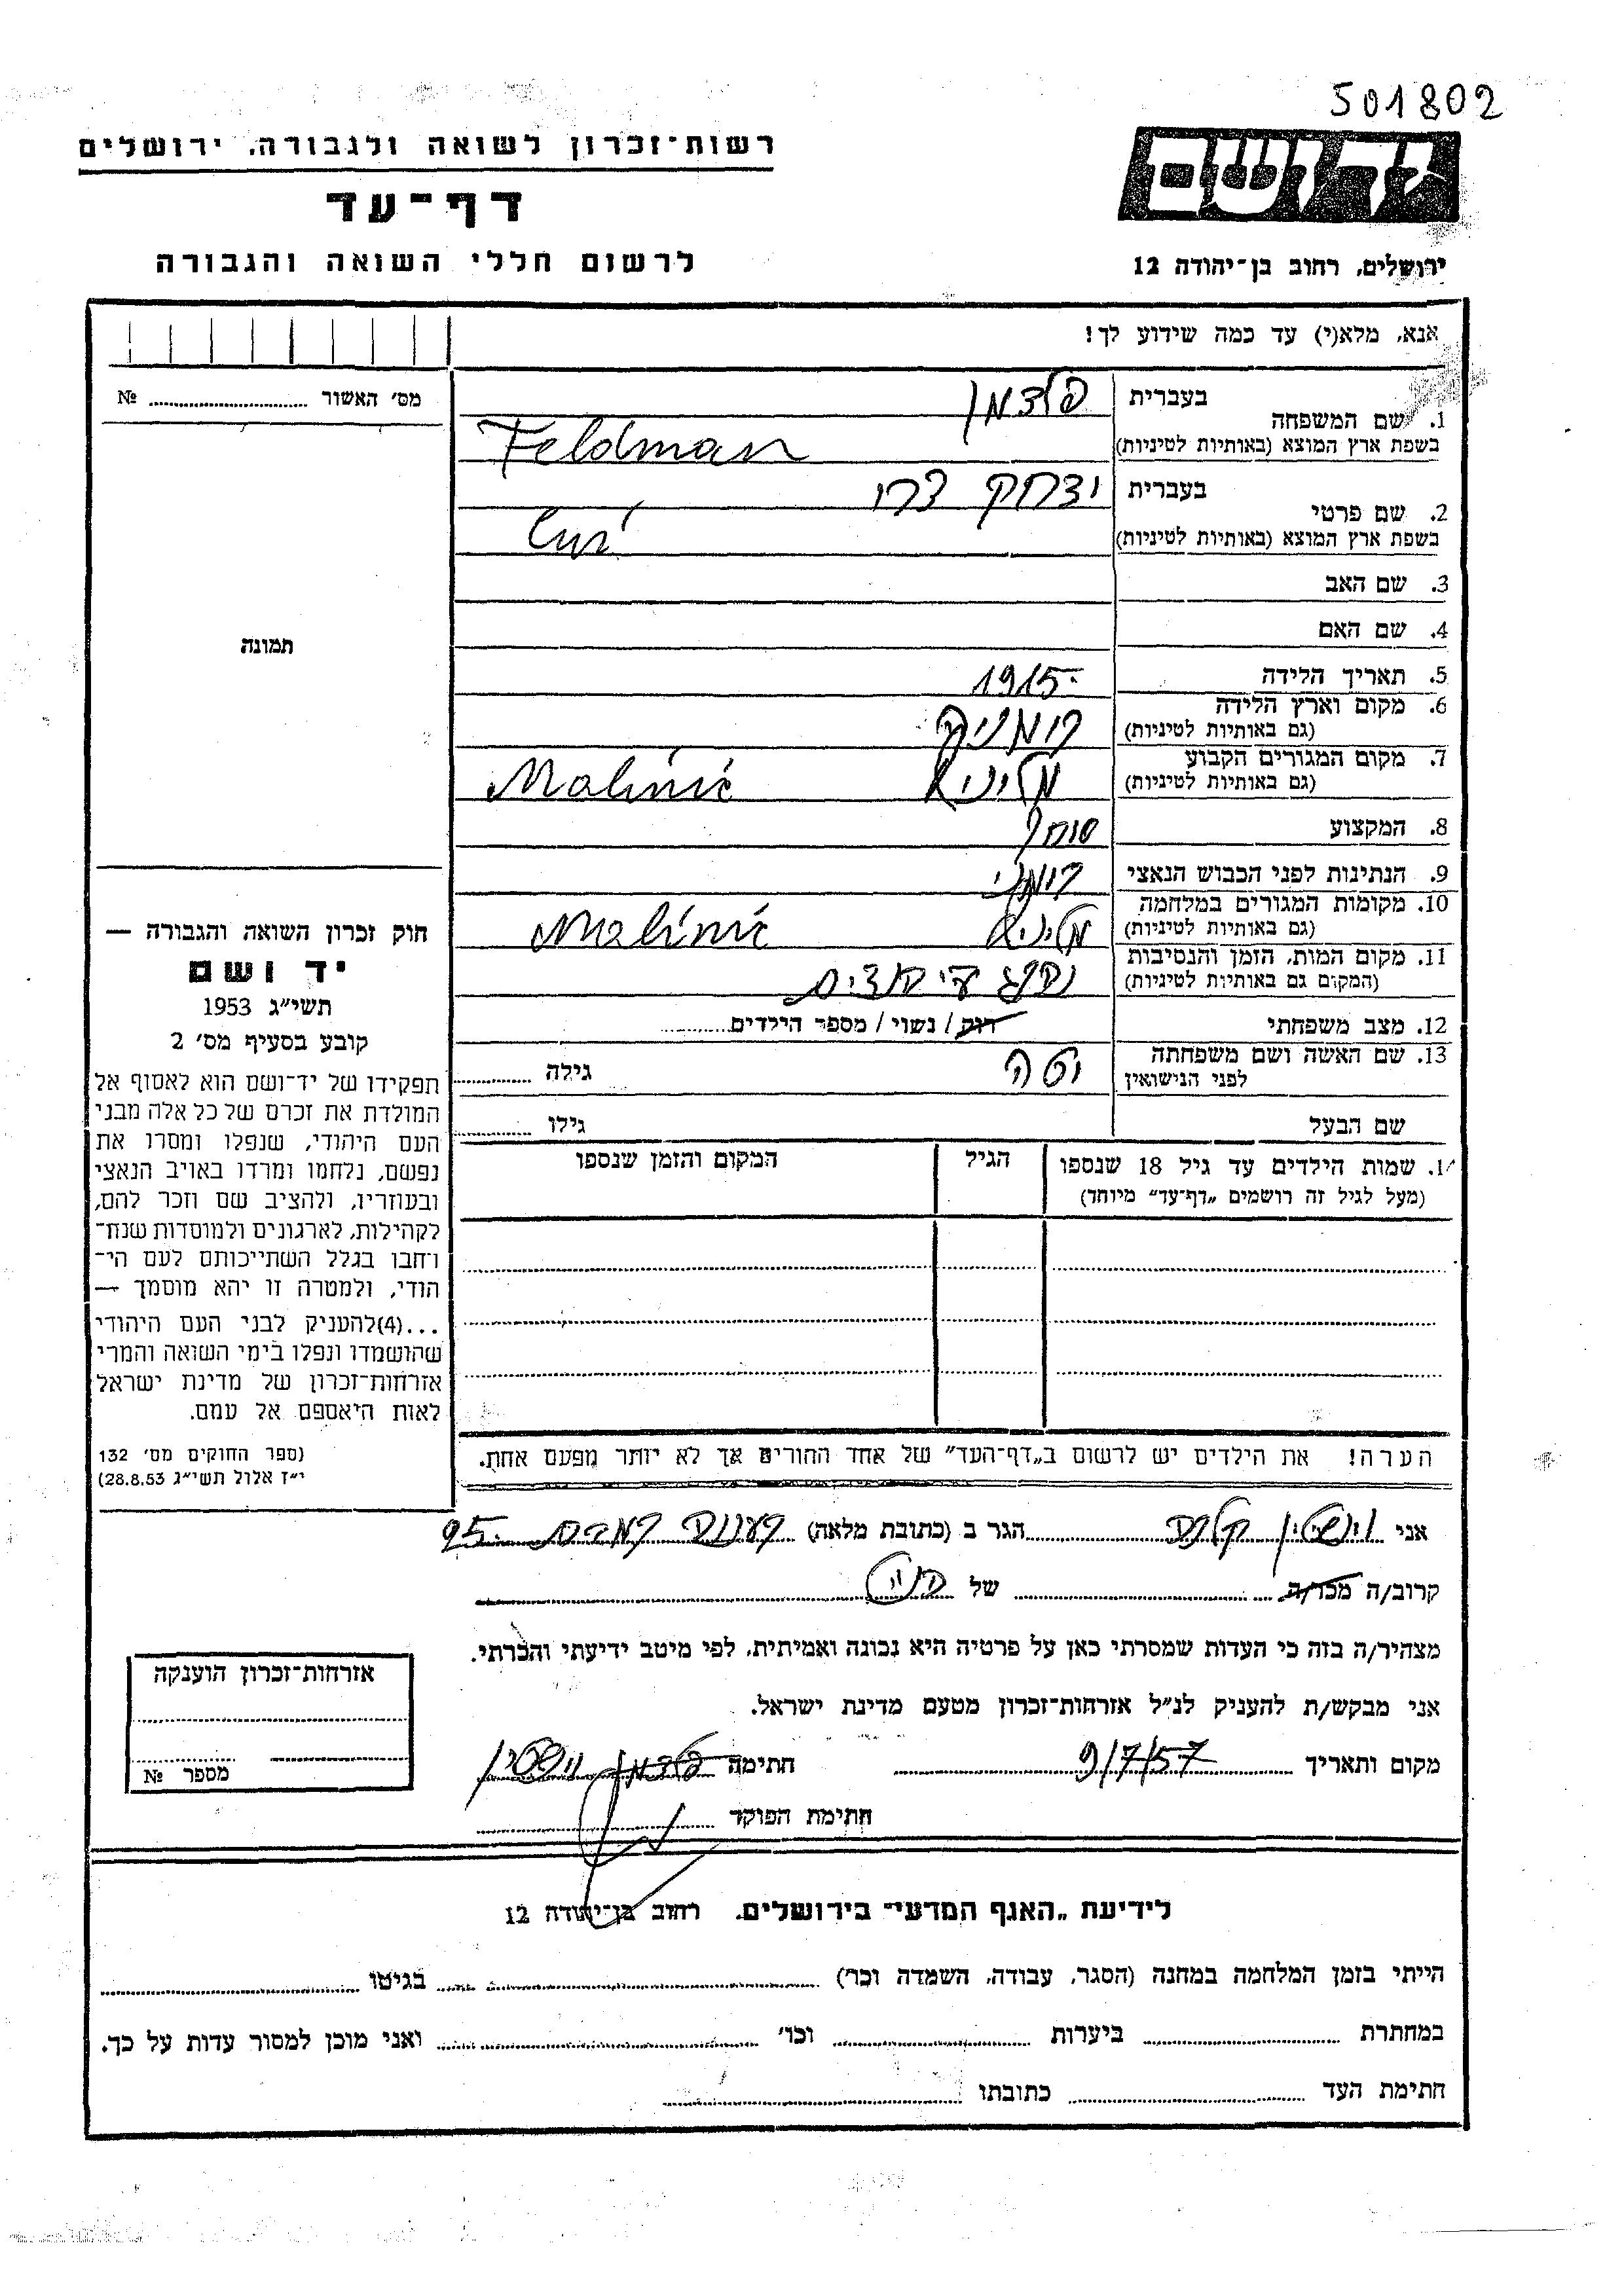 501802
יד ושם
רשות-זכרון לשואה ולגבורה, ירושלים
דף-עד
לרשום חללי השואה והגבורה
ירושלים, רחוב בן-יהודה 12
אנא, מלא(י) עד כמה שידוע לך!
מס׳ האשור №
1. שם המשפחה
בעברית פלדמן
בשפת ארץ המוצא (באותיות לטיניות) Feldman
2. שם פרטי
בעברית יצחק
בשפת ארץ המוצא (באותיות לטיניות)
3. שם האב
4. שם האם
5. תאריך הלידה 1915
6. מקום וארץ הלידה
(גם באותיות לטיניות) רומניה
7. מקום המגורים הקבוע
(גם באותיות לטיניות)
8. המקצוע סוחר
9. הנתינות לפני הכבוש הנאצי רומני
10. מקומות המגורים במלחמה
(גם באותיות לטיניות)
11. מקום המות, הזמן והנסיבות
(המקום גם באותיות לטיניות)
12. מצב משפחתי רווק / נשוי / מספר הילדים
13. שם האשה ושם משפחתה
לפני הנישואין יטה גילה
שם הבעל גילו
14. שמות הילדים עד גיל 18 שנספו הגיל המקום והזמן שנספו
(מעל לגיל זה רושמים „דף-עד״ מיוחד)
הערה! את הילדים יש לרשום ב„דף-העד״ של אחד ההורים אך לא יותר מפעם אחת.
תמונה
חוק זכרון השואה והגבורה —
יד ושם
תשי״ג 1953
קובע בסעיף מס׳ 2
תפקידו של יד-ושם הוא לאסוף אל
המולדת את זכרם של כל אלה מבני
העם היהודי, שנפלו ומסרו את
נפשם, נלחמו ומרדו באויב הנאצי
ובעוזריו, ולהציב שם וזכר להם,
לקהילות, לארגונים ולמוסדות שנח-
רבו בגלל השתייכותם לעם הי-
הודי, ולמטרה זו יהא מוסמך —
...(4)להעניק לבני העם היהודי
שהושמדו ונפלו בימי השואה והמרי
אזרחות-זכרון של מדינת ישראל
לאות היאספם אל עמם.
(ספר החוקים מס׳ 132
י״ז אלול תשי״ג 28.8.53)
אני הגר ב (כתובת מלאה) 95
קרוב/ה מכר/ה של
מצהיר/ה בזה כי העדות שמסרתי כאן על פרטיה היא נכונה ואמיתית, לפי מיטב ידיעתי והכרתי.
אני מבקש/ת להעניק לנ״ל אזרחות-זכרון מטעם מדינת ישראל.
מקום ותאריך 9/7/57 חתימה
חתימת הפוקד
אזרחות-זכרון הוענקה
מספר №
לידיעת „האגף המדעי״ בירושלים, רחוב בן-יהודה 12
הייתי בזמן המלחמה במחנה (הסגר, עבודה, השמדה וכו׳) בגיטו
במחתרת ביערות וכו׳ ואני מוכן למסור עדות על כך.
חתימת העד כתובתו